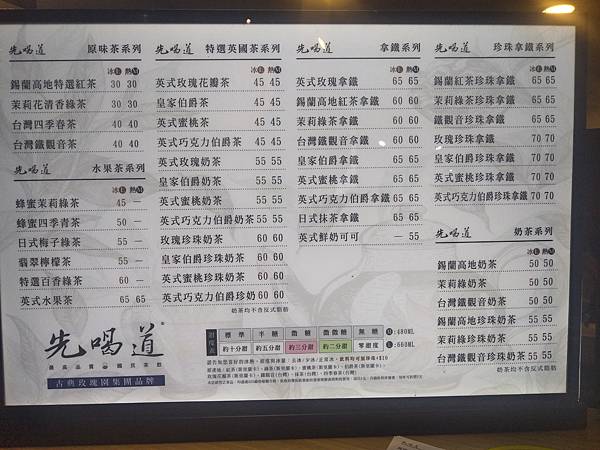 先喝道 原味茶系列
冰L 熱M
錫蘭高地特選紅茶 30 30
茉莉花清香綠茶 30 30
台灣四季春茶 40 40
台灣鐵觀音茶 40 40
先喝道 水果茶系列
冰L 熱M
蜂蜜茉莉綠茶 45 —
蜂蜜四季青茶 50 —
日式梅子綠茶 55 —
翡翠檸檬茶 55 —
特選百香綠茶 60 —
英式水果茶 65 65
先喝道 特選英國茶系列
冰L 熱M
英式玫瑰花瓣茶 45 45
皇家伯爵茶 45 45
英式蜜桃茶 45 45
英式巧克力伯爵茶 45 45
英式玫瑰奶茶 55 55
皇家伯爵奶茶 55 55
英式蜜桃奶茶 55 55
英式巧克力伯爵奶茶 55 55
玫瑰珍珠奶茶 60 60
皇家伯爵珍珠奶茶 60 60
英式蜜桃珍珠奶茶 60 60
英式巧克力伯爵珍奶 60 60
奶茶均不含反式脂肪
先喝道 拿鐵系列
冰L 熱M
英式玫瑰拿鐵 65 65
錫蘭高地紅茶拿鐵 60 60
茉莉綠茶拿鐵 60 60
台灣鐵觀音拿鐵 60 60
皇家伯爵拿鐵 65 65
英式蜜桃拿鐵 65 65
英式巧克力伯爵拿鐵 65 65
日式抹茶拿鐵 65 65
英式鮮奶可可 — 55
先喝道 珍珠拿鐵系列
冰L 熱M
錫蘭紅茶珍珠拿鐵 65 65
茉莉綠茶珍珠拿鐵 65 65
鐵觀音珍珠拿鐵 65 65
玫瑰珍珠拿鐵 70 70
皇家伯爵珍珠拿鐵 70 70
英式蜜桃珍珠拿鐵 70 70
英式巧克力伯爵珍珠拿鐵 70 70
先喝道 奶茶系列
冰L 熱M
錫蘭高地奶茶 50 50
茉莉綠奶茶 50 50
台灣鐵觀音奶茶 50 50
錫蘭高地珍珠奶茶 55 55
茉莉綠珍珠奶茶 55 55
台灣鐵觀音珍珠奶茶 55 55
奶茶均不含反式脂肪
先喝道
最高品質 國民茶飲
古典玫瑰園集團品牌
甜度表 標準 半糖 微糖 微微糖 無糖 M:480ML
約十分甜 約五分甜 約三分甜 約二分甜 零甜度 L:660ML